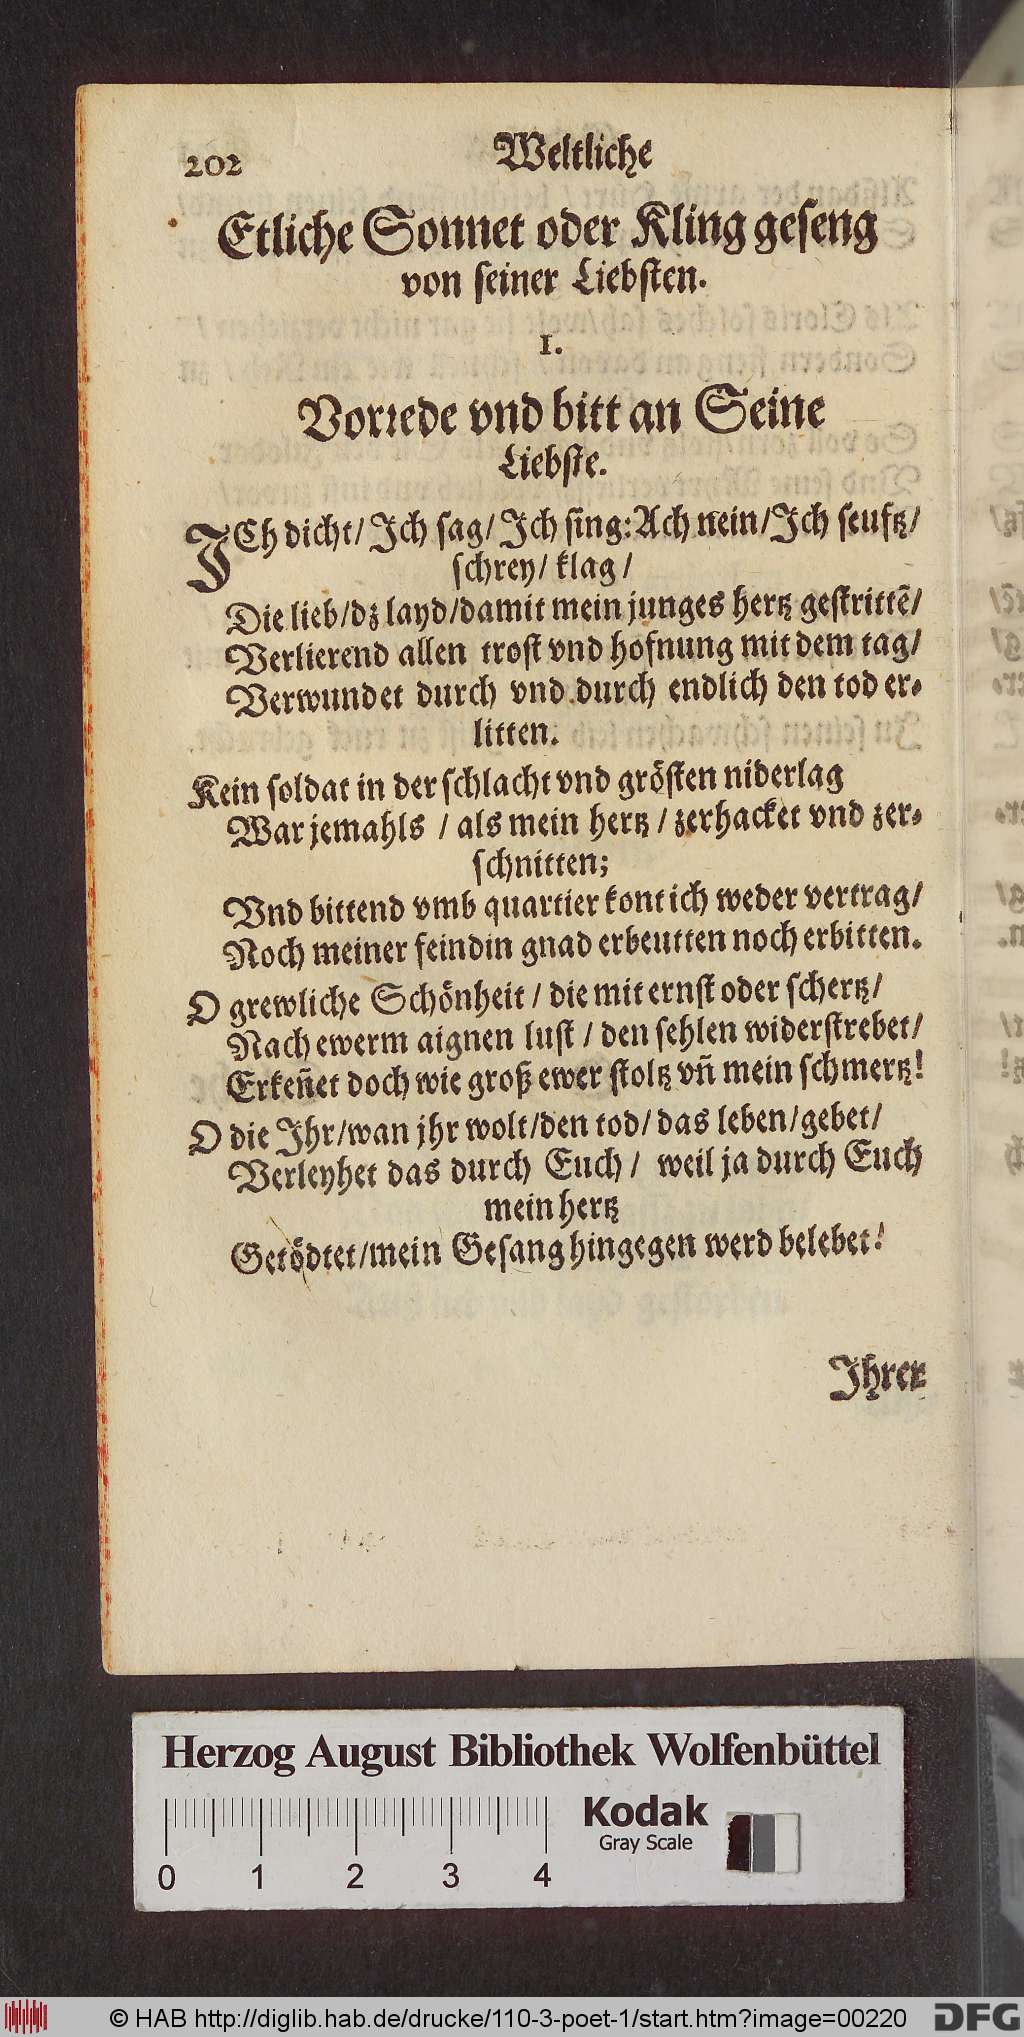 202 Weltliche
Etliche Sonnet oder Kling geseng
von seiner Liebsten.
I.
Vorrede vnd bitt an Seine
Liebste.
ICh dicht/ Ich sag/ Ich sing: Ach nein/ Ich seuftz/
schrey/ klag/
Die lieb/ dz layd/ damit mein junges hertz gestrittẽ/
Verlierend allen trost vnd hofnung mit dem tag/
Verwundet durch vnd durch endlich den tod er-
litten.
Kein soldat in der schlacht vnd grösten niderlag
War jemahls / als mein hertz / zerhacket vnd zer-
schnitten;
Vnd bittend vmb quartier kont ich weder vertrag/
Noch meiner feindin gnad erbeutten noch erbitten.
O grewliche Schönheit / die mit ernst oder schertz/
Nach ewerm aignen lust / den sehlen widerstrebet/
Erkeñet doch wie groß ewer stoltz vñ mein schmertz!
O die Ihr/ wan jhr wolt/ den tod/ das leben/ gebet/
Verleyhet das durch Euch / weil ja durch Euch
mein hertz
Getödtet/ mein Gesang hingegen werd belebet!
Ihrer
Herzog August Bibliothek Wolfenbüttel
Kodak
Gray Scale
0 1 2 3 4
© HAB http://diglib.hab.de/drucke/110-3-poet-1/start.htm?image=00220 DFG